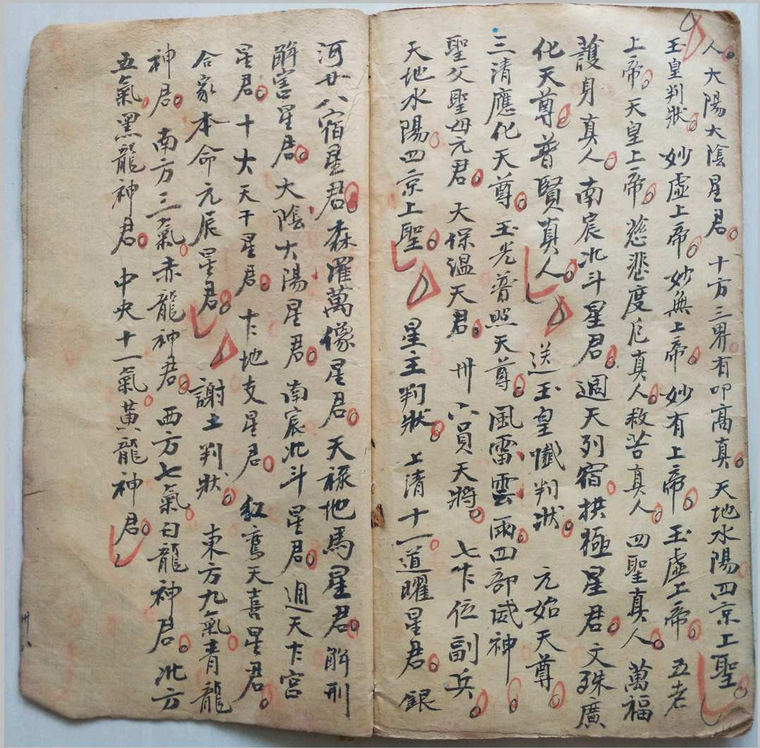 人大陽大陰星君十方三界有叩高真天地水陽四京上聖
玉皇判狀 妙虛上帝妙無上帝妙有上帝玉虛上帝五老
上帝天皇上帝慈悲度厄真人救苦真人四聖真人萬福
護身真人南宸北斗星君週天列宿拱極星君文殊廣
化天尊普賢真人 送玉皇懺判狀 元始天尊
三清應化天尊玉光普照天尊風雷雲雨四部威神
聖父聖母元君天保溫天君卅六員天將七十位副兵
天地水陽四京上聖 星主判狀 上清十一道曜星君銀
河廿八宿星君森羅萬像星君天祿地馬星君解刑
解害星君大陰大陽星君南宸北斗星君週天十宮
星君十大天干星君十地支星君紅鸞天喜星君
合家本命元辰星君 謝土判狀 東方九氣青龍
神君南方三氣赤龍神君西方七氣白龍神君北方
五氣黑龍神君中央十一氣黃龍神君